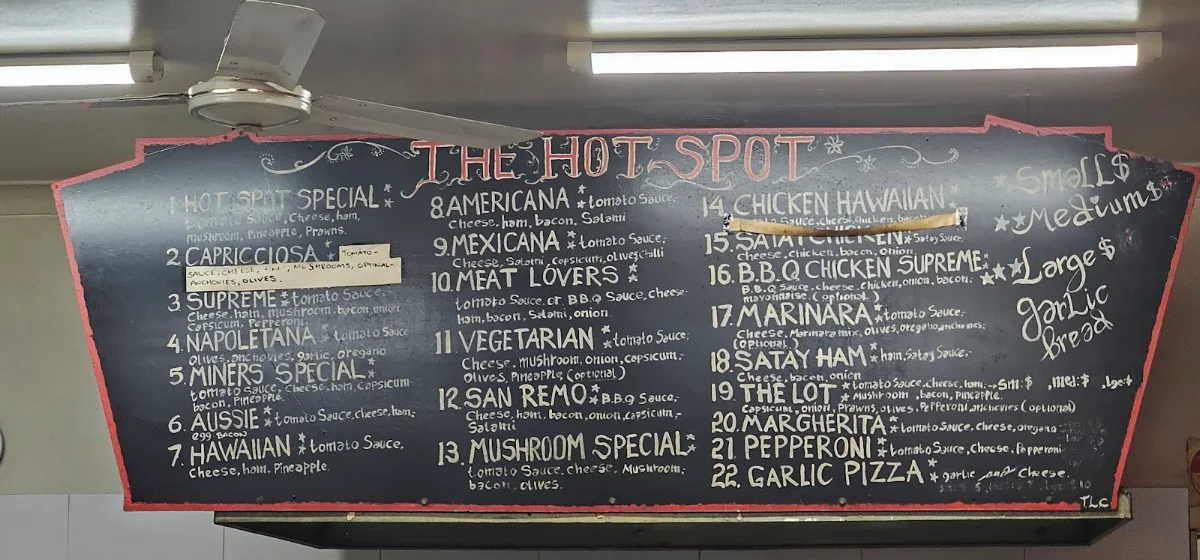 THE HOT SPOT
1 HOT SPOT SPECIAL *
tomato Sauce, Cheese, ham,
mushroom, Pineapple, Prawns.
2. CAPRICCIOSA * TOMATO-
SAUCE, CHEESE, HAM, MUSHROOMS, OPTINAL-
ANCHOVIES, OLIVES.
3 SUPREME * tomato Sauce,
Cheese, ham, mushroom, bacon, onion
Capsicum, Pepperoni
4. NAPOLETANA * tomato Sauce
olives, anchovies, garlic, oregano
5. MINERS SPECIAL *
tomato Sauce, Cheese, ham, capsicum
bacon, Pineapple.
6. AUSSIE * tomato Sauce, cheese, ham,
egg, bacon
7. HAWAIIAN * tomato Sauce,
Cheese, ham, Pineapple.
8. AMERICANA * tomato Sauce,
Cheese, ham, bacon, Salami
9. MEXICANA * tomato Sauce,
Cheese, Salami, Capsicum, olives, chilli
10. MEAT LOVERS *
tomato Sauce, or B.B.Q Sauce, cheese-
ham, bacon, Salami, onion.
11 VEGETARIAN * tomato Sauce,
Cheese, mushroom, onion, capsicum,-
Olives, Pineapple (optional)
12. SAN REMO * B.B.Q Sauce,
Cheese, ham, bacon, onion, capsicum,-
Salami
13. MUSHROOM SPECIAL *
tomato Sauce, cheese, Mushroom,
bacon, olives.
14. CHICKEN HAWAIIAN *
tomato Sauce, cheese, Chicken, bacon
15. SATAY CHICKEN * Satay Sauce,
Cheese, chicken, bacon, Onion
16. B.B.Q CHICKEN SUPREME *
B.B.Q Sauce, cheese, Chicken, onion, bacon,
mayonnaise. (optional)
17. MARINARA * tomato Sauce,
Cheese, Marinara mix, olives, oregano, anchovies,
(optional)
18. SATAY HAM * ham, Satay Sauce,-
Cheese, bacon, onion
19. THE LOT * tomato Sauce, cheese, ham, → Sm: $ , med: $ , lge: $
* Mushroom, bacon, Pineapple,
Capsicum, onion, Prawns, olives, Pepperoni, anchovies (optional)
20. MARGHERITA * tomato Sauce, cheese, oregano
21. PEPPERONI * tomato Sauce, Cheese, Pepperoni
22. GARLIC PIZZA * garlic and Cheese
* Small $
** Medium $
*** Large $
garlic
bread
TLC